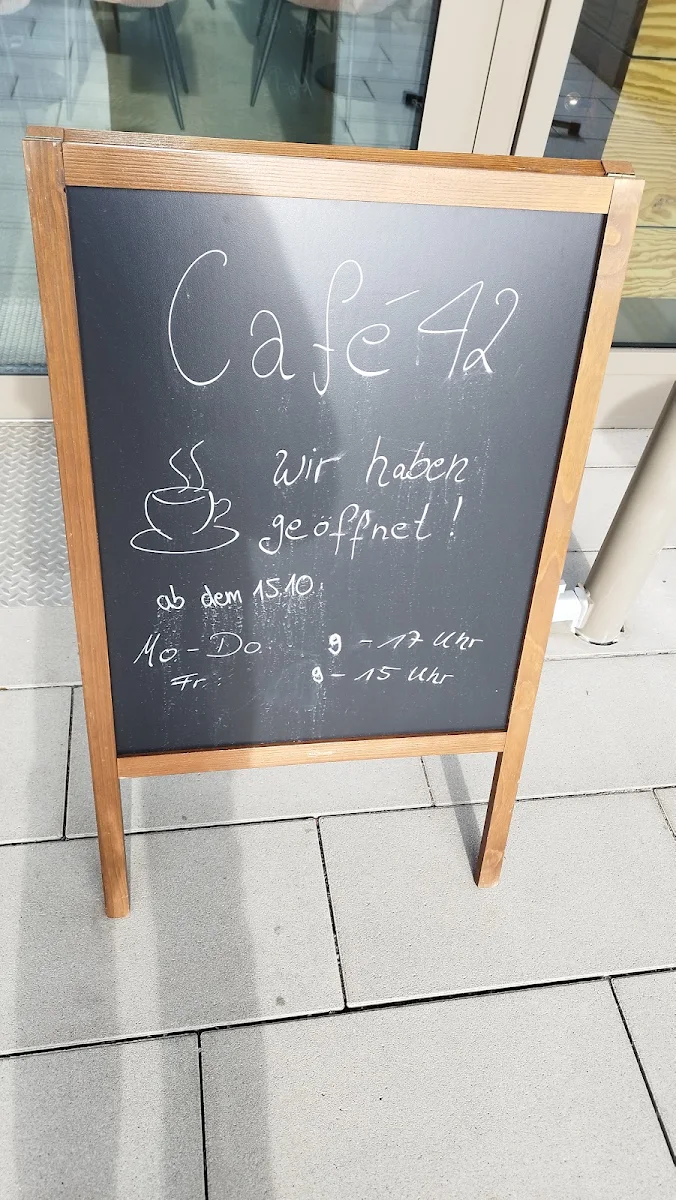 Café 42
wir haben
geöffnet!
ab dem 15.10.
Mo - Do 9 - 17 Uhr
Fr. 9 - 15 Uhr